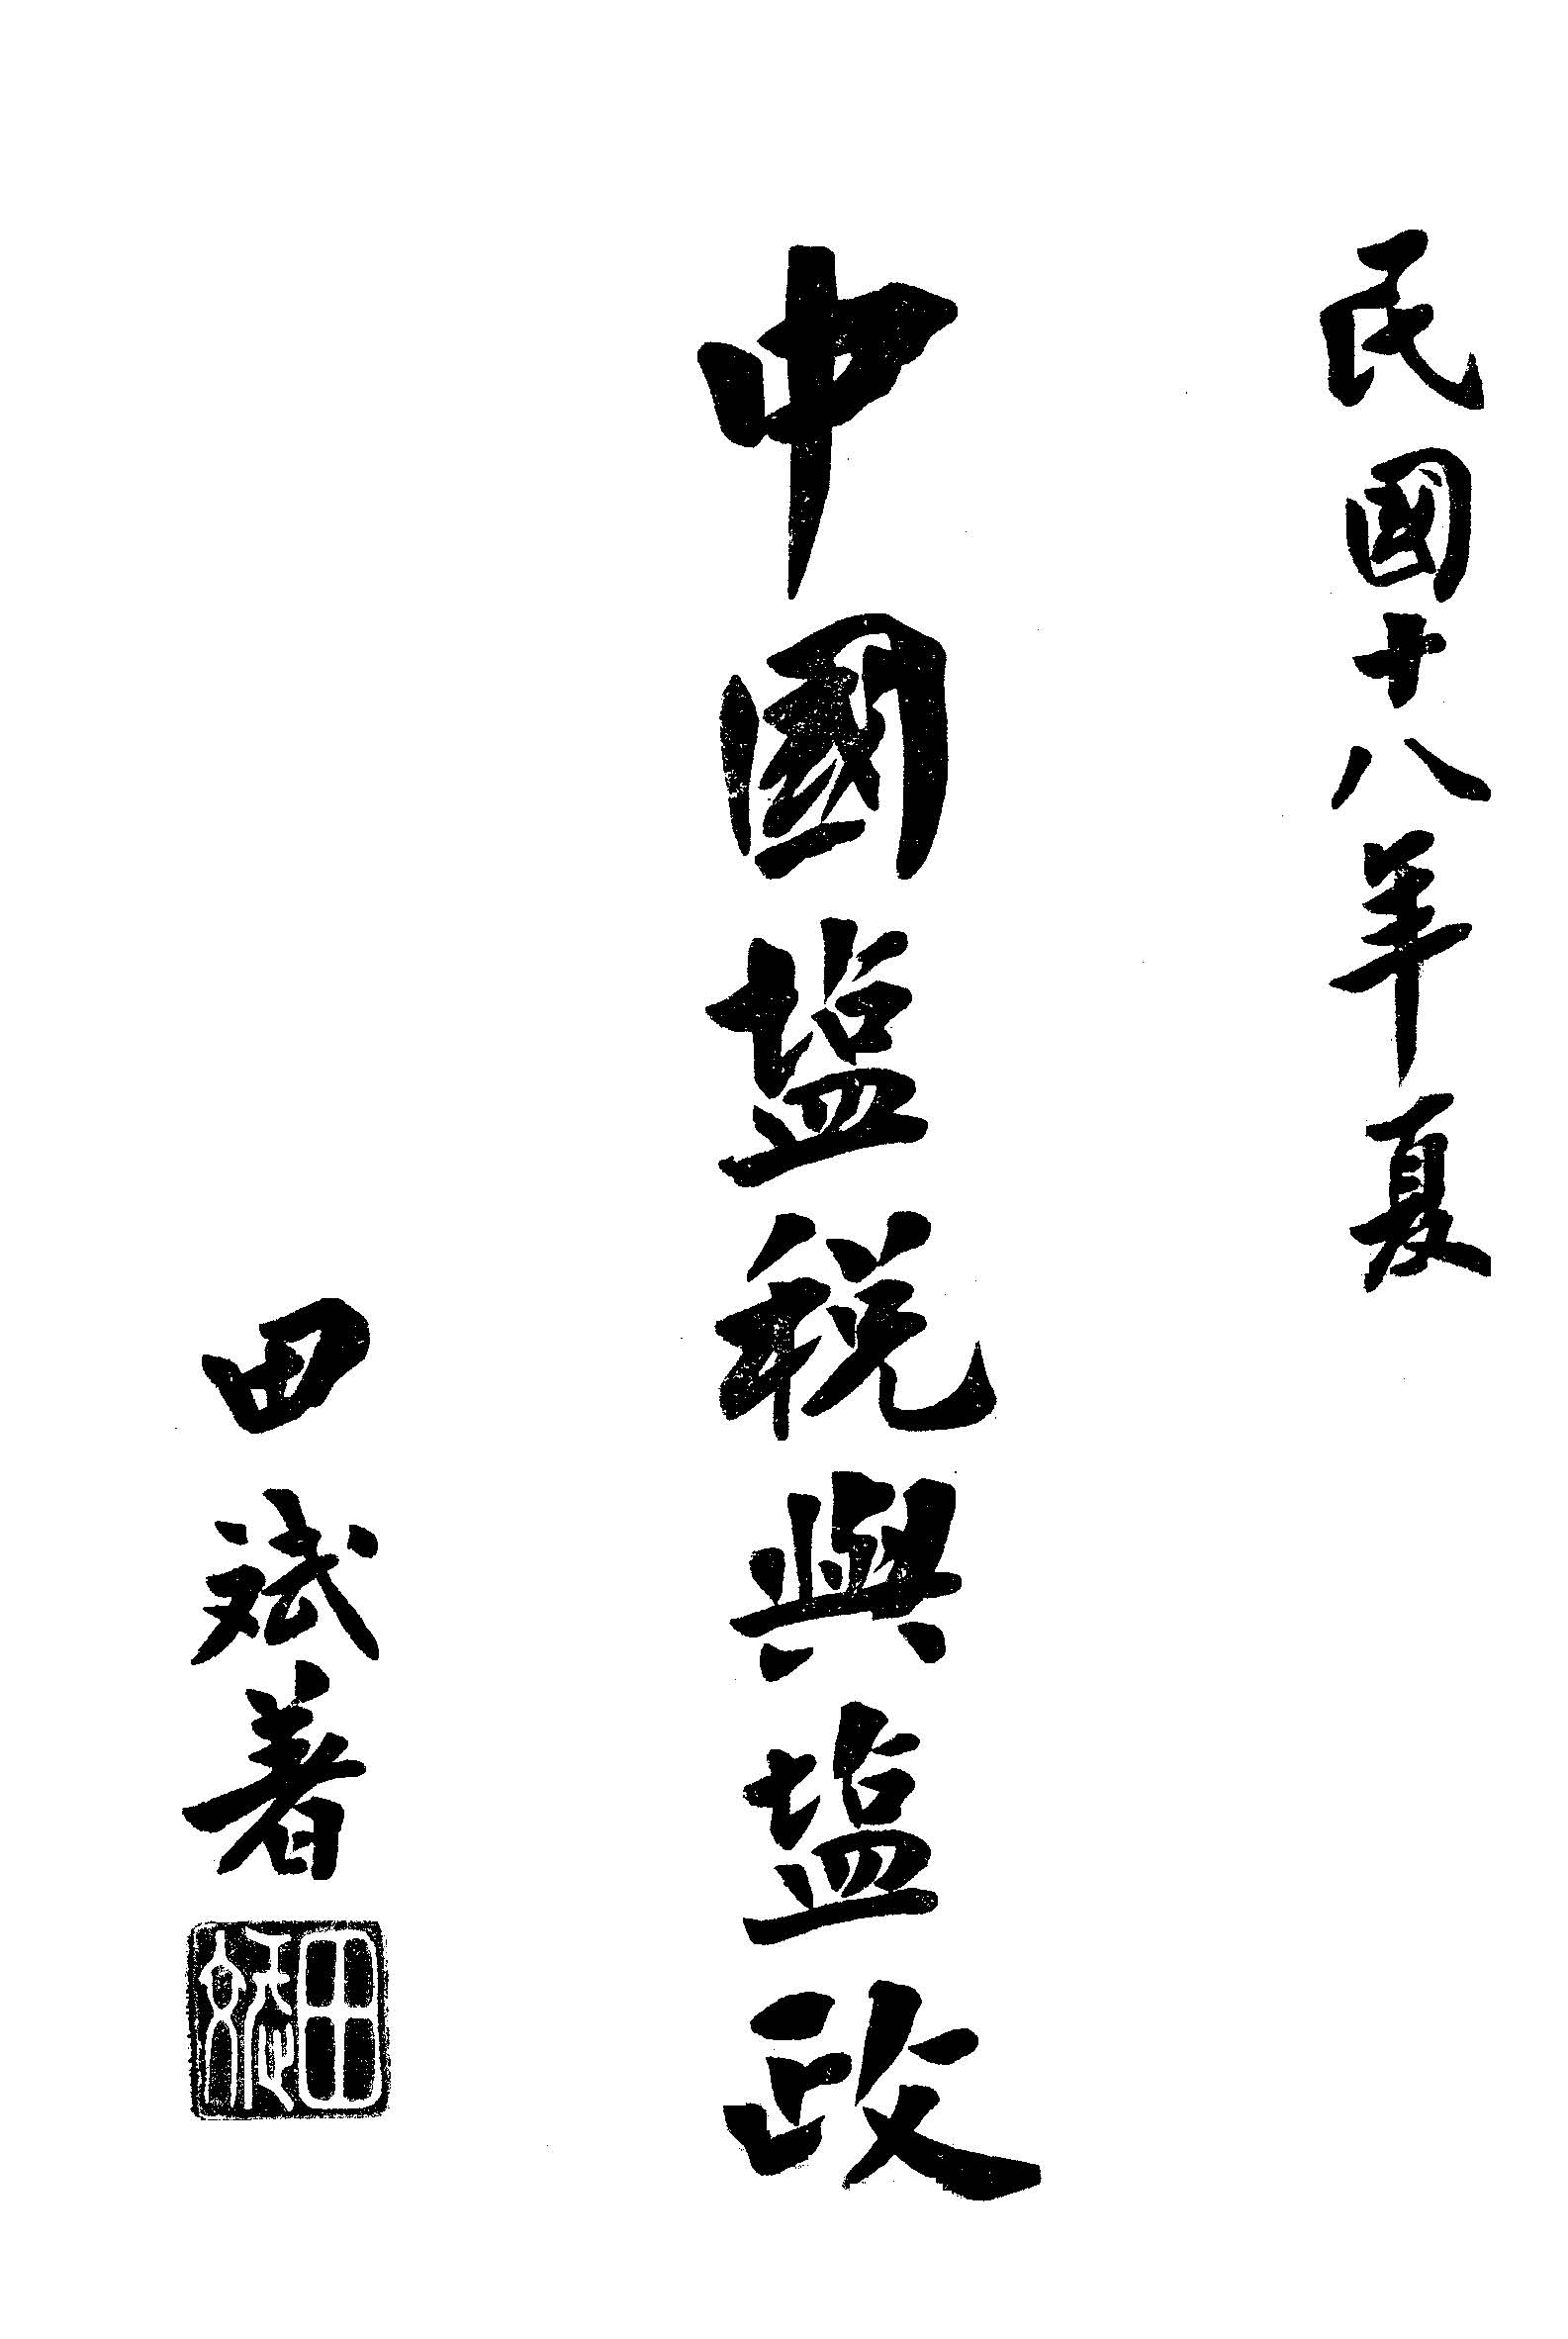 民國十八年夏
中國塩税與塩政
田斌著
田斌